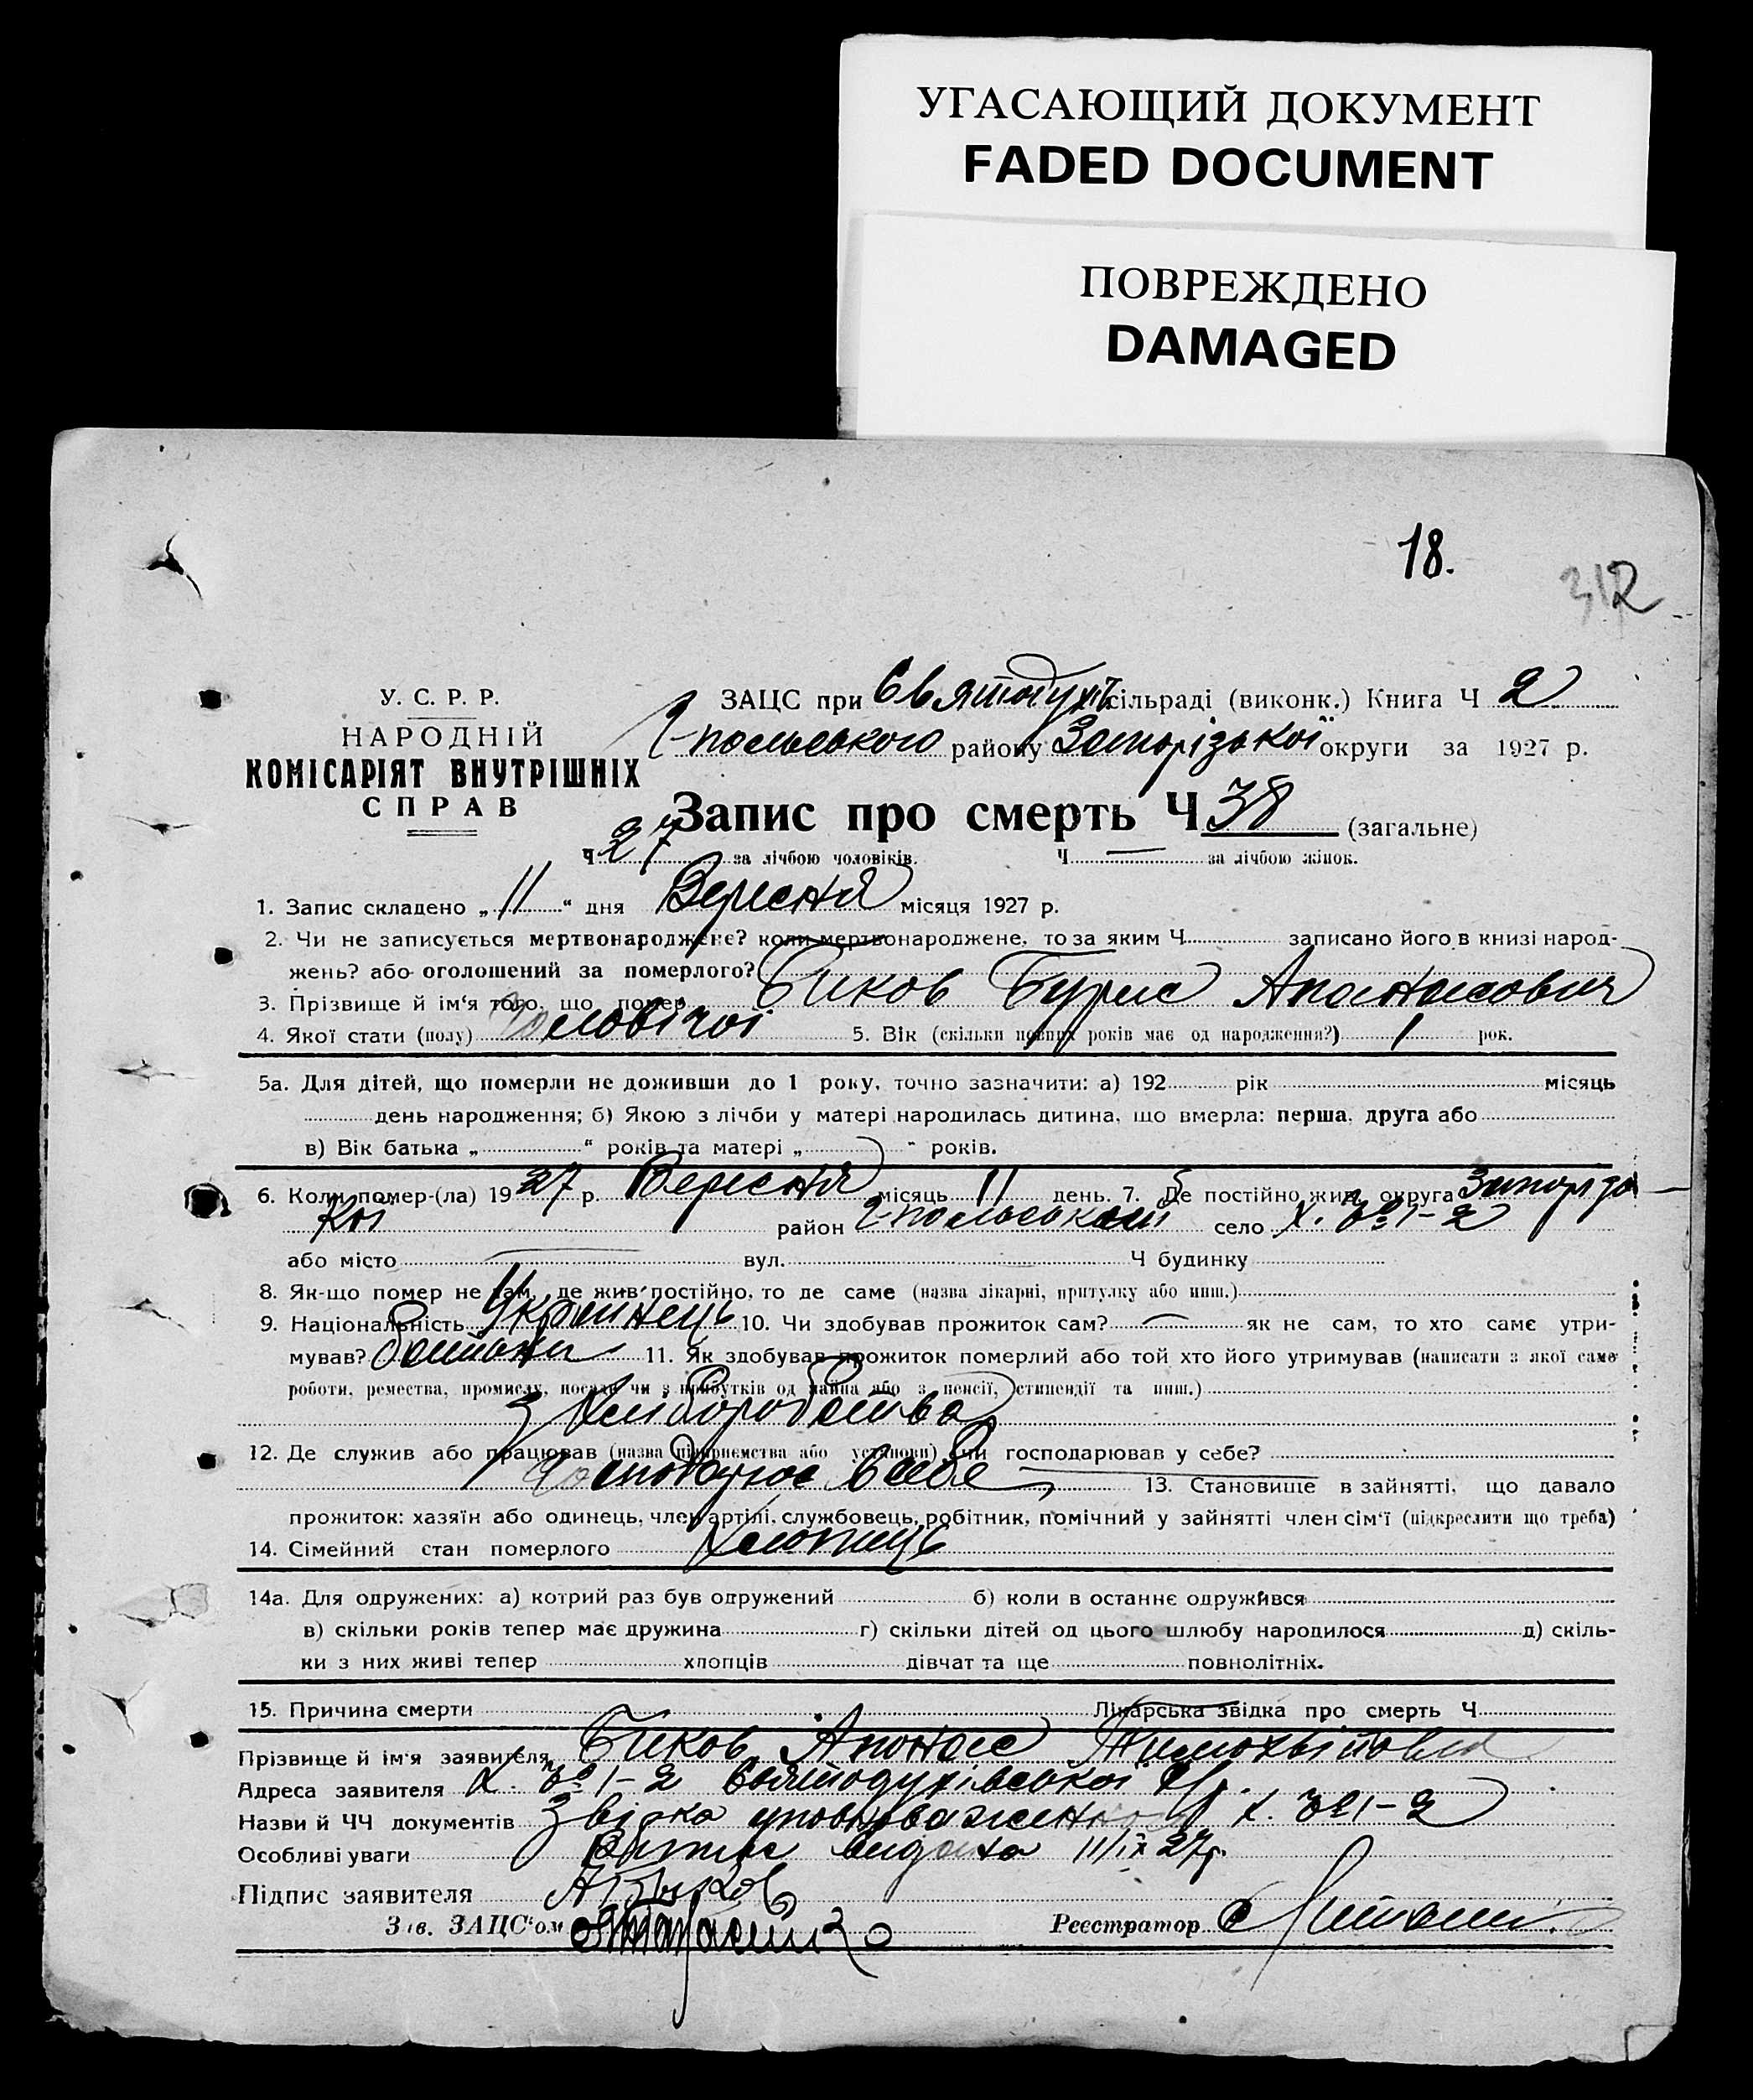 УГАСАЮЩИЙ ДОКУМЕНТ
FADED DOCUMENT
ПОВРЕЖДЕНО
DAMAGED
18.
312
У. С. Р. Р.
НАРОДНІЙ
КОМІСАРІЯТ ВНУТРІШНІХ
СПРАВ
ЗАЦС при Святодух сільраді (виконк.) Книга Ч 2
-польського району Запорізької округи за 1927 р.
Запис про смерть Ч 38 (загальне)
Ч 27 за лічбою чоловіків. Ч — за лічбою жінок.
1. Запис складено „ 11 “ дня Вересня місяця 1927 р.
2. Чи не записується мертвонароджене? коли мертвонароджене, то за яким Ч записано його в книзі народ-
жень? або оголошений за померлого?
3. Прізвище й ім‘я того, що помер Биков Бурис Апанасович
4. Якої стати (полу) Чоловічої 5. Вік (скільки повних років має од народження?) 1 рок.
5а. Для дітей, що померли не доживши до 1 року, точно зазначити: а) 192 рік місяць
день народження; б) Якою з лічби у матері народилась дитина, що вмерла: перша, друга або
в) Вік батька „ “ років та матері „ “ років.
6. Коли помер-(ла) 1927 р. Вересня місяць 11 день. 7. Де постійно жив, округа Запорізь
кої район -польський село х. № 1-2
або місто вул. Ч будинку
8. Як-що помер не там, де жив постійно, то де саме (назва лікарні, притулку або инш.)
9. Національність Українець 10. Чи здобував прожиток сам? — як не сам, то хто саме утри-
мував? батьки 11. Як здобував прожиток померлий або той хто його утримував (написати з якої саме
роботи, ремества, промислу, посади чи з прибутків од майна або з пенсії, стипендії та инш.)
З Хліборобства
12. Де служив або працював (назва підприємства або установи) чи господарював у себе?
Господарює в себе 13. Становище в зайнятті, що давало
прожиток: хазяїн або одинець, член артілі, службовець, робітник, помічний у зайнятті член сім‘ї (підкреслити що треба)
14. Сімейний стан померлого Хлопець
14а. Для одружених: а) котрий раз був одружений б) коли в останнє одружився
в) скільки років тепер має дружина г) скільки дітей од цього шлюбу народилося д) скіль-
ки з них живі тепер хлопців дівчат та ще повнолітніх.
15. Причина смерти Лікарська звідка про смерть Ч
Прізвище й ім‘я заявителя Биков Апонас
Адреса заявителя х. № 1-2 Святодухівської с/р.
Назви й ЧЧ документів Звідка уповноваженного х. № 1-2
Особливі уваги Витяг видано 11/ІХ 27р.
Підпис заявителя А Быков
Зав. ЗАЦС‘ом Реєстратор